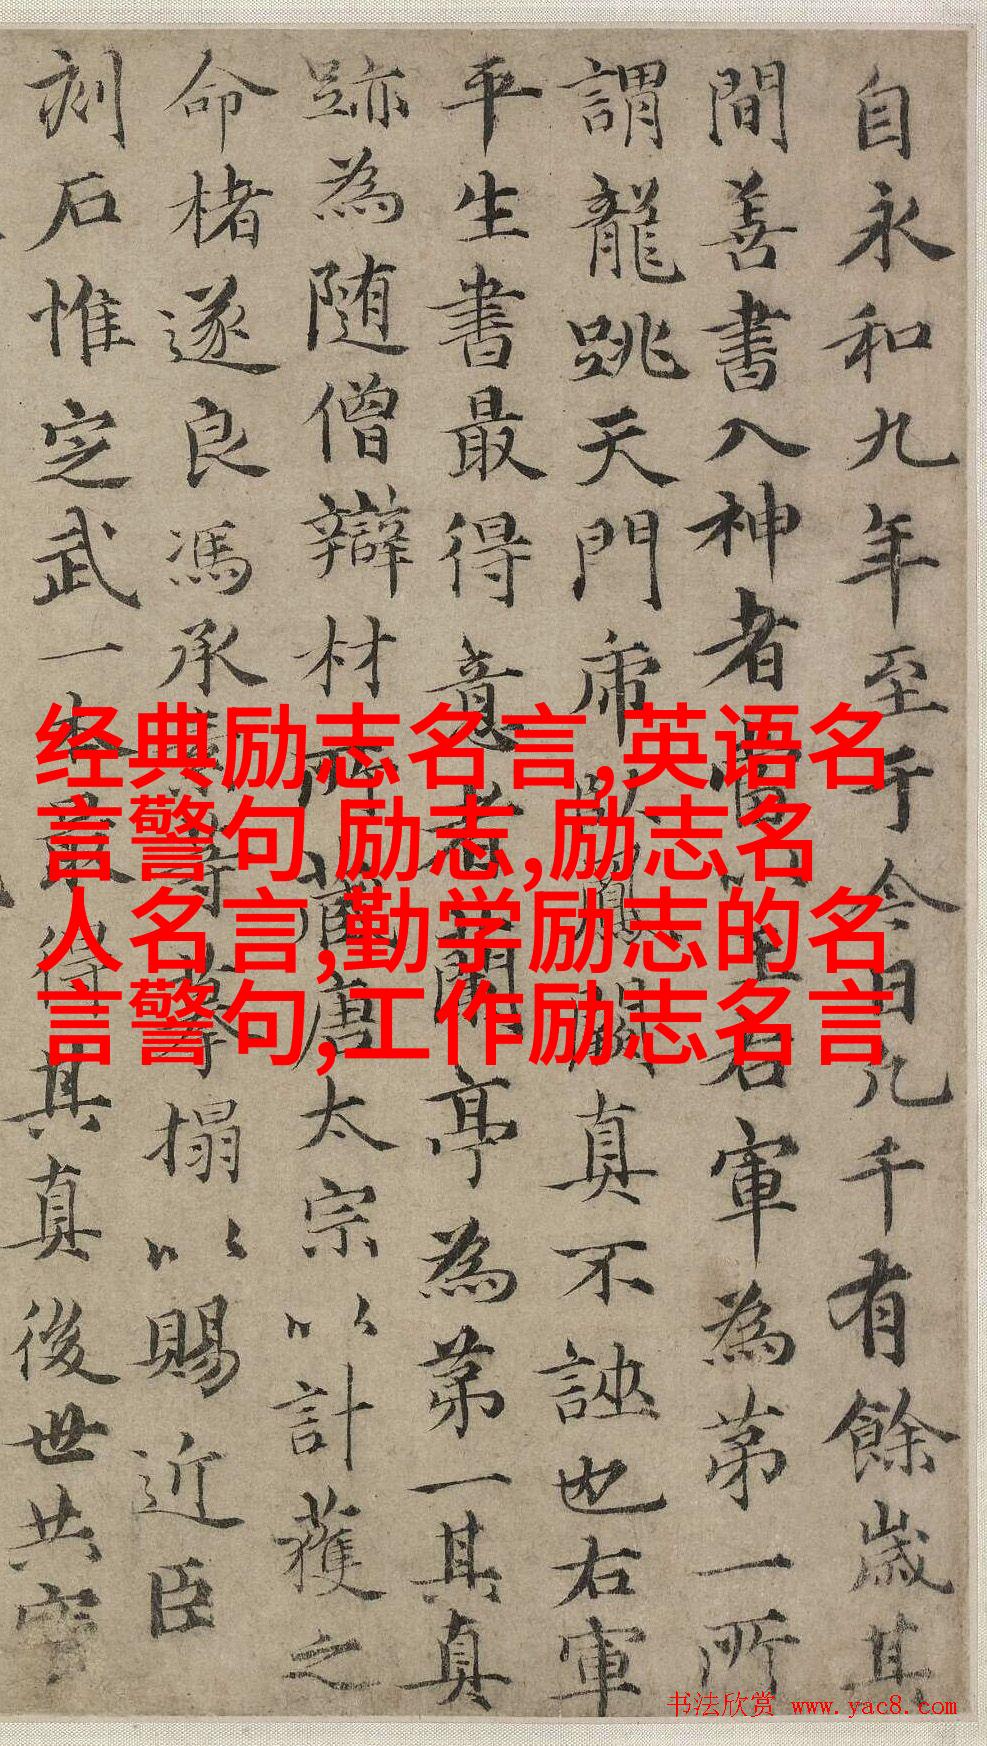 自永和九年至于今日凡千有餘歲其
間善書入神者當以王右軍為第一所
謂龍跳天門虎臥鳳閣真不誣也右軍
平生書最得意者蘭亭為第一其真
跡為隨僧辯材所藏唐太宗以計獲之
命楮遂良馮承素等摹搨以賜近臣
刻石惟定武一本最得其真後世共寶
经典励志名言,英语名
言警句 励志,励志名
人名言,勤学励志的名
言警句,工作励志名言
书法欣赏 www.yac8.com